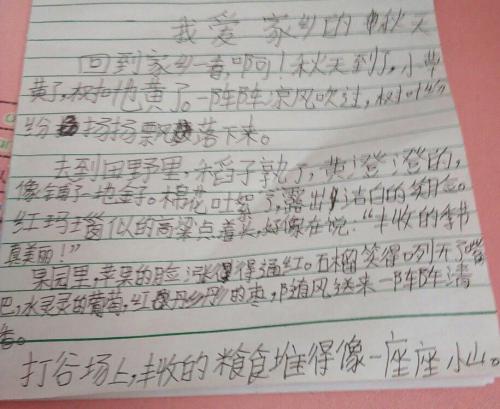 我爱家乡的秋天
回到家乡一看,啊!秋天到了,小草
黄了,树叶也黄了。一阵阵凉风吹过,树叶纷
纷扬扬飘落下来。
去到田野里,稻子熟了,黄澄澄的,
像铺了一地金子。棉花吐絮了,露出洁白的笑脸。
红玛瑙似的高梁点着头,好像在说:“丰收的季节
真美丽!”
果园里,苹果的脸涨得通红。石榴笑得咧开了嘴
巴,水灵灵的葡萄,红丹丹的枣,随风送来一阵阵清
香。
打谷场上,丰收的粮食堆得像一座座小山。